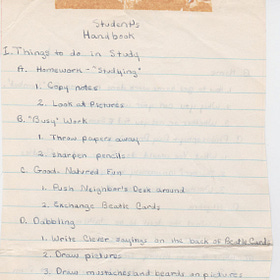 Student's
Handbook
I. Things to do in Study
A. Homeworn - "Studying"
1. Copy notes
2. Look at Pictures
B. "Busy" Work
1. Throw papers away
2. sharpen pencils
C. Good Natured Fun
1. Push Neighbor's Desk around
2. Exchange Beatle Cards
D. Dabbling
1. Write Clever sayings on the back of Beatle Cards
2. Draw pictures
3. Draw mustaches and beards on pictures